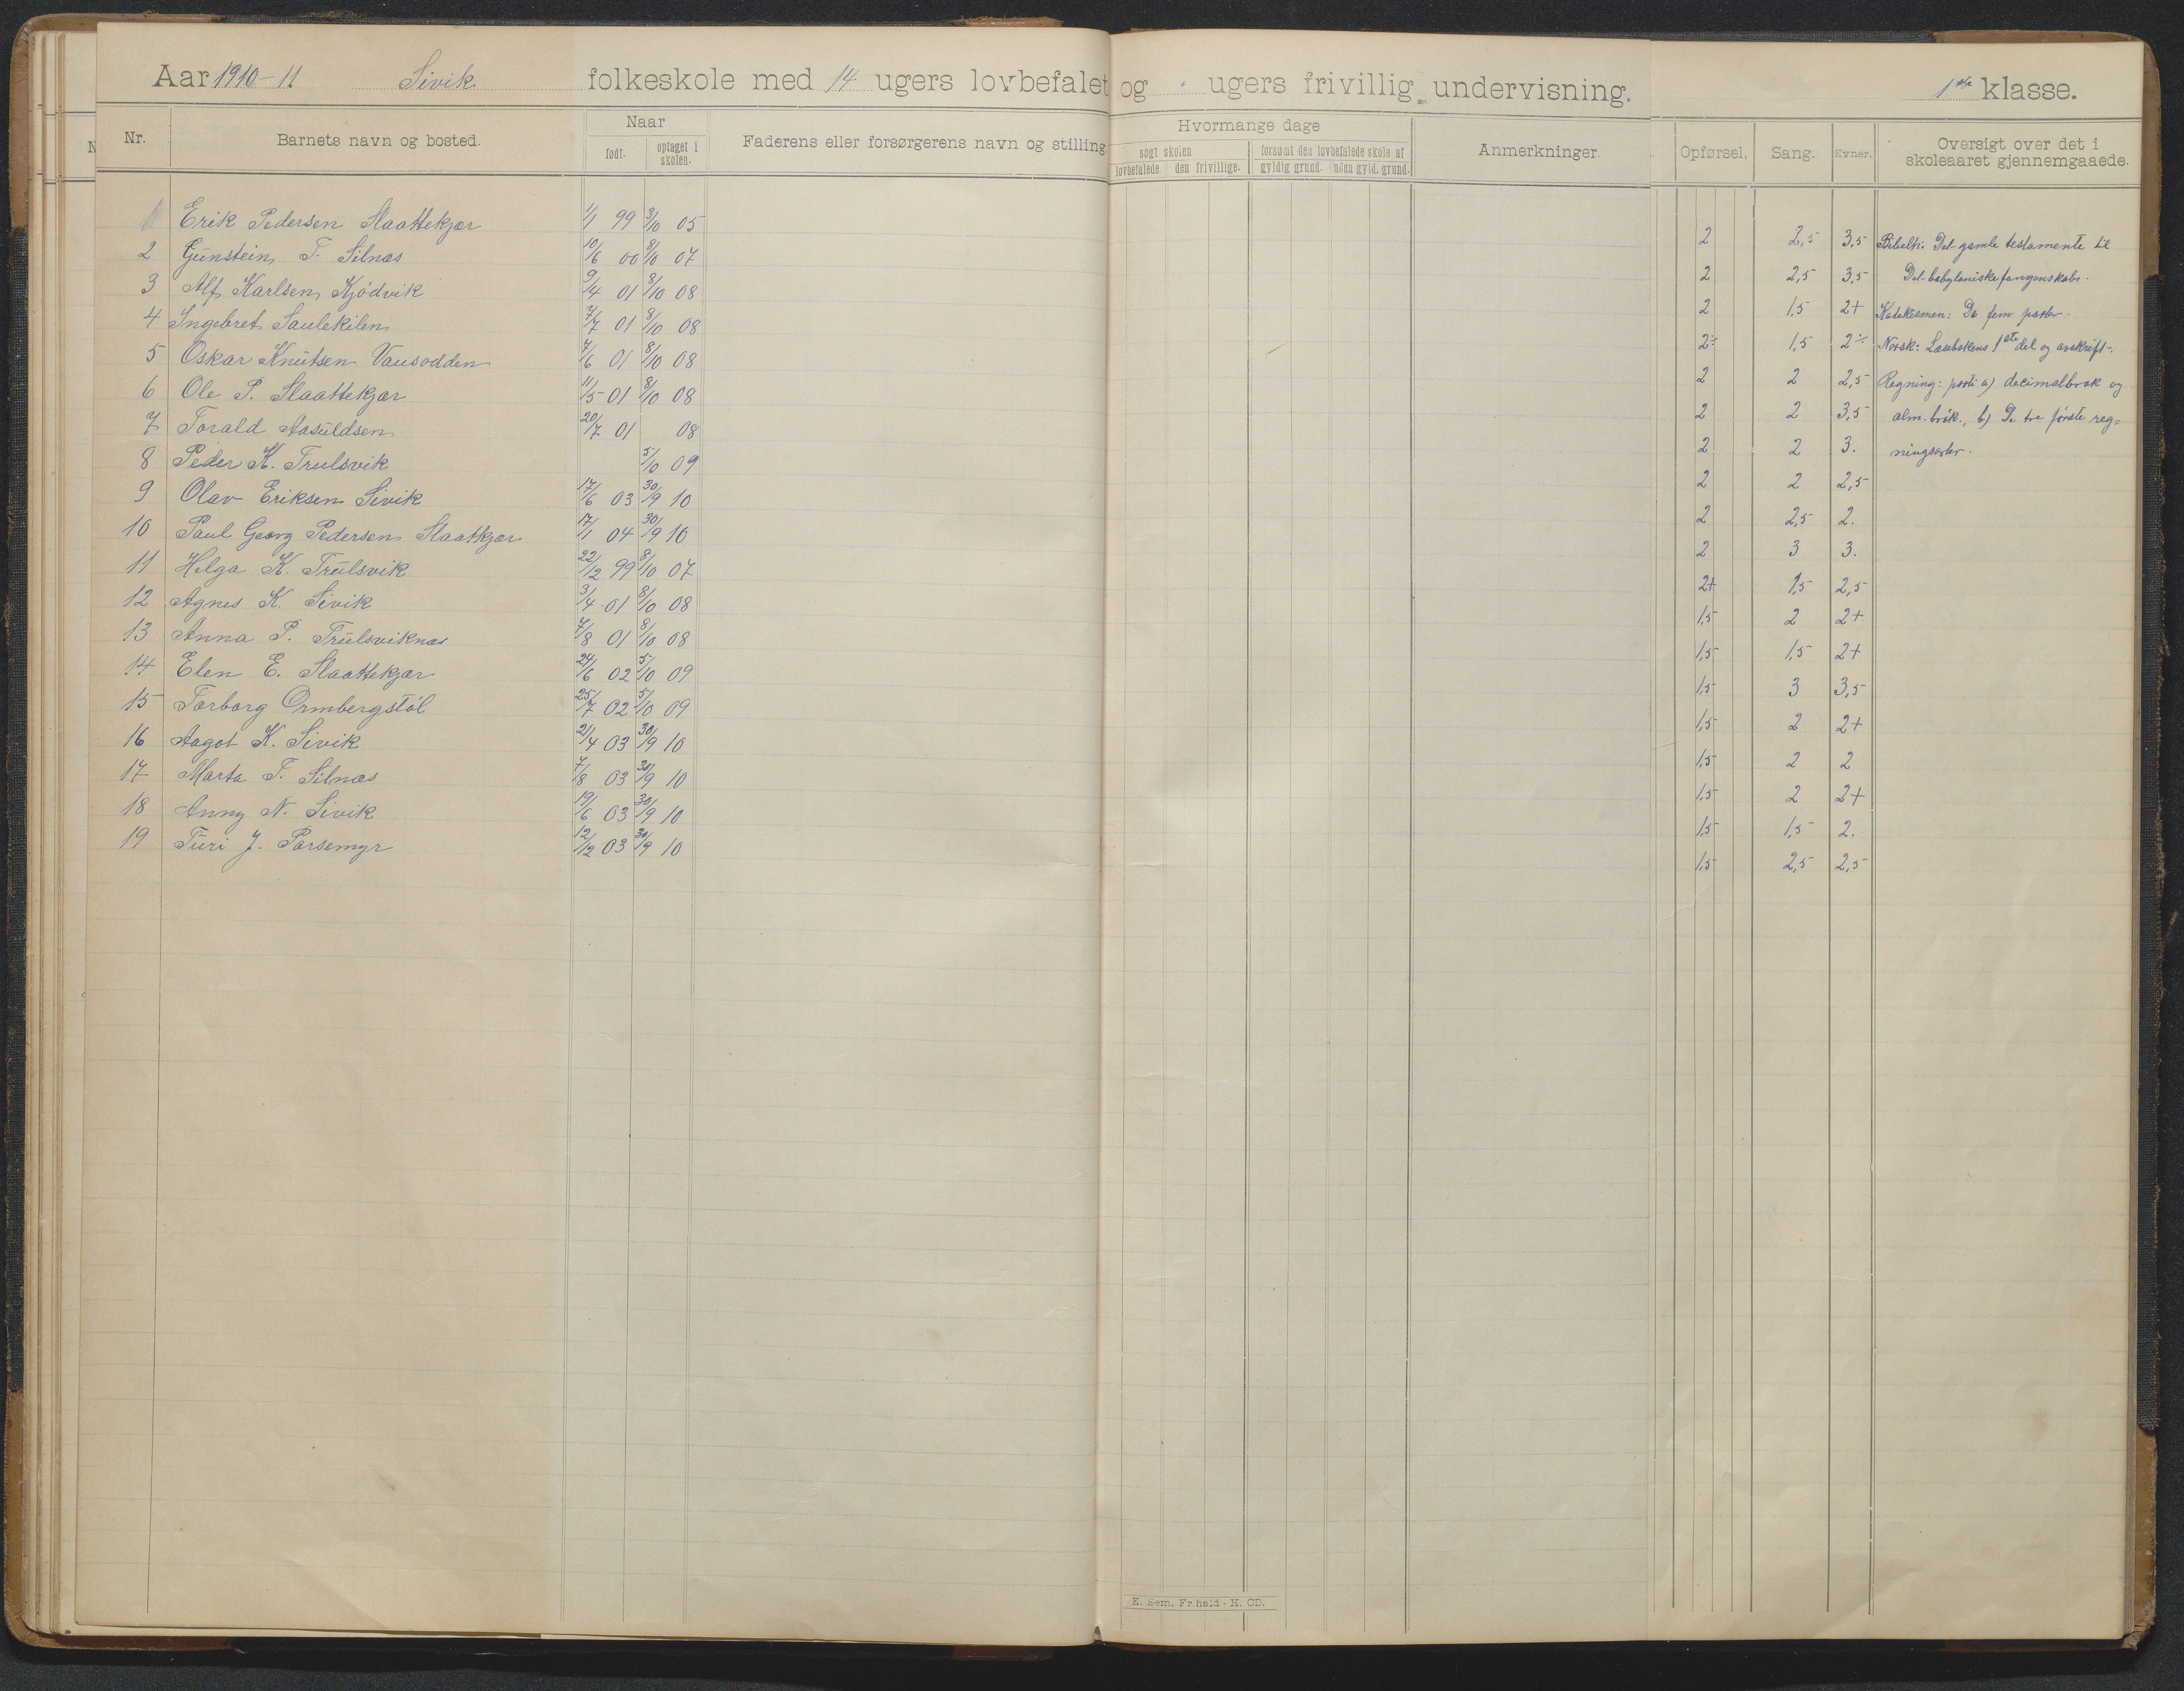 Aar 1910-11 Sivik folkeskole med 14 ugers lovbefalet og - ugers frivillig undervisning. 1ste klasse.
Nr. Barnets navn og bosted. Naar født. optaget i skolen. Faderens eller forsørgerens navn og stilling Hvormange dage søgt skolen lovbefalede den frivillige. forsømt den lovbefalede skole af gyldig grund. uden gyld. grund. Anmerkninger Opførsel. Sang. Evner. Oversigt over det i skoleaaret gjennemgaaede.
1 Erik Pedersen Slaattekjær 1/1 99 3/10 05 2 2,5 3,5 Bibelh: Det gamle testamente til
2 Gunstein T. Silnæs 10/6 00 8/10 07 2 2,5 3,5 Det babyloniske fangenskab.
3 Alf Karlsen Kjødvik 9/4 01 8/10 08 2 1,5 2+ Katekismen: De fem parter.
4 Ingebret Saulekilen 7/7 01 8/10 08 2÷ 1,5 2÷ Norsk: Læsebokens 1ste del og avskrift.
5 Oskar Knutsen Vausodden 7/6 01 8/10 08 2 2 2,5 Regning: parti a) decimalbrøk og
6 Ole P. Slaattekjær 11/5 01 8/10 08 2 2 3,5 alm. brøk., b) De tre første reg=
7 Torald Aasuldsen 20/7 01 08 2 2 3. ningsarter.
8 Peder K. Trulsvik 5/10 09 2 2 2,5
9 Olav Eriksen Sivik 17/6 03 30/9 10 2 2,5 2.
10 Paul Georg Pedersen Slaatkjær 17/1 04 30/9 10 2 3 3.
11 Helga K. Trulsvik 22/12 99 8/10 07 2+ 1,5 2,5
12 Agnes K. Sivik 3/4 01 8/10 08 1,5 2 2+
13 Anna P. Trulsviknæs 7/8 01 8/10 08 1,5 1,5 2+
14 Elen E. Slaattekjær 24/6 02 5/10 09 1,5 3 3,5
15 Torborg Ormbergstøl 25/7 02 5/10 09 1,5 2 2+
16 Aagot K. Sivik 21/4 03 30/9 10 1,5 2 2
17 Marta T. Silnæs 7/8 03 30/9 10 1,5 2 2+
18 Anny N. Sivik 19/6 03 30/9 10 1,5 1,5 2.
19 Turi J. Porsemyr 12/12 03 30/9 10 1,5 2,5 2,5
E. Sem. Fr.hald - H. CD.